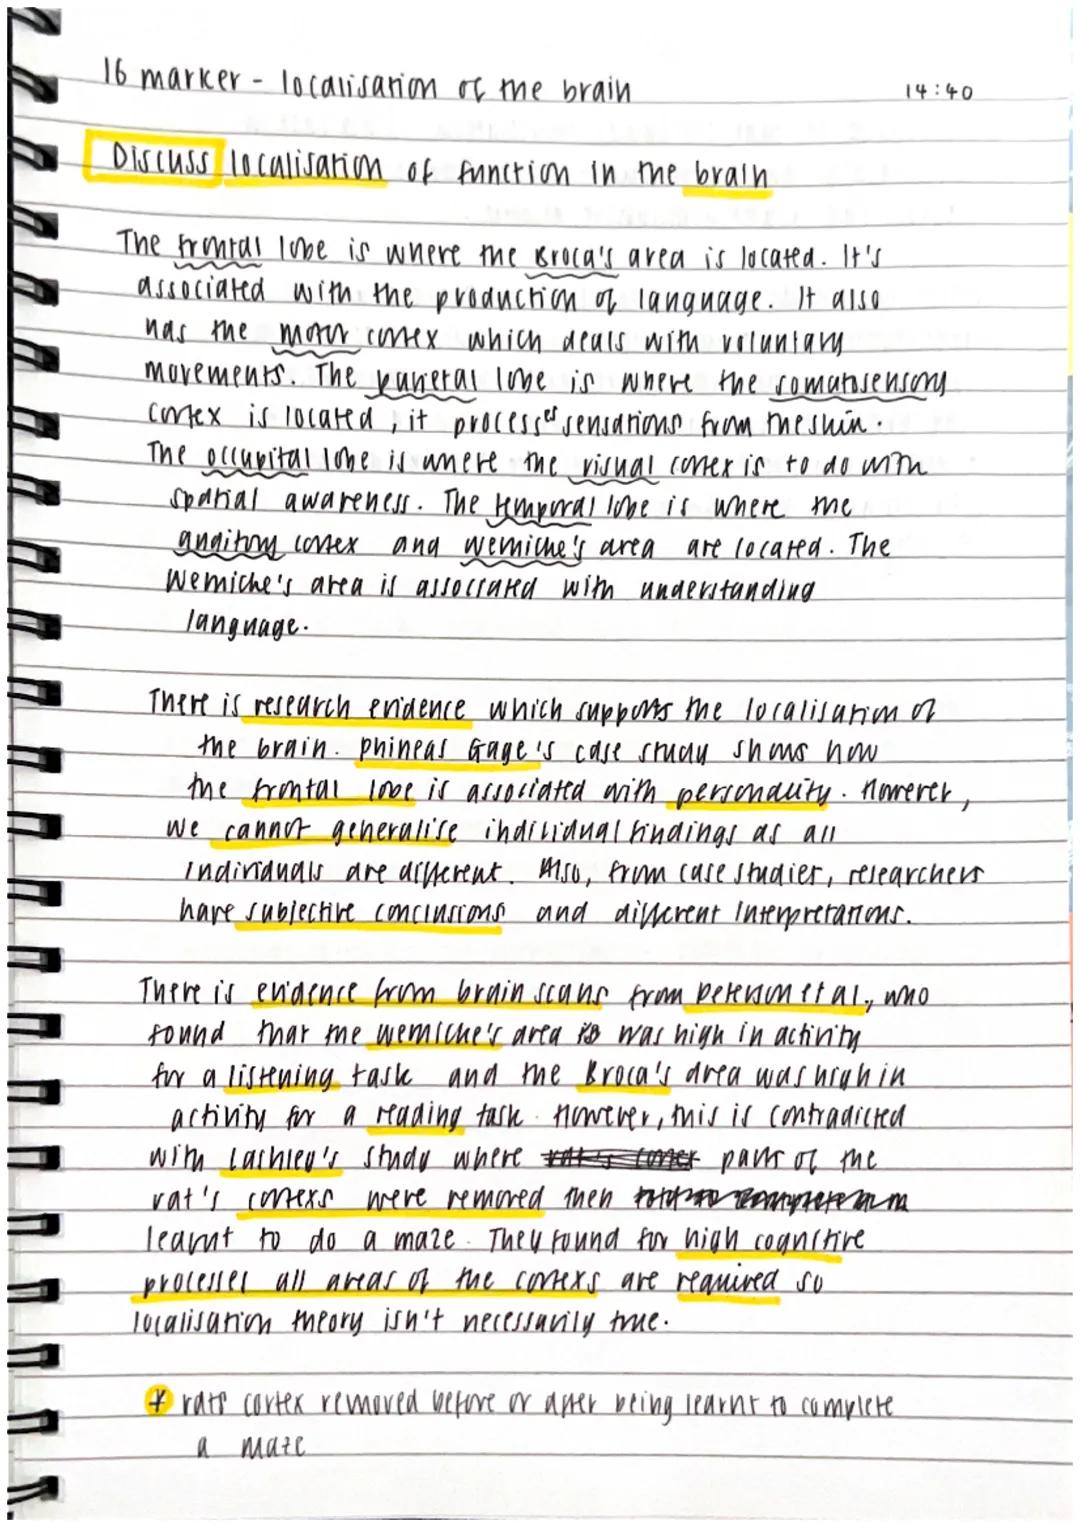 16 marker - localisation of the brain
14:40
Discuss localisation of function in the brain
The frontal lobe is where the Broca's area is located. It's
associated with the production of language. It also
has the motor cortex which deals with voluntary
movements. The parietal lobe is where the somatosensory
cortex is located, it processes sensations from the skin.
The occupital lobe is where the visual cortex is to do with
spatial awareness. The temporal lobe is where the
auditory cortex and Wernicke's area are located. The
Wernicke's area is associated with understanding
language.
There is research evidence which supports the localisation of
the brain. Phineas Gage's case study shows how
the frontal lobe is associated with personality. However,
we cannot generalise individual findings as all
individuals are different. Also, from case studies, researchers
have subjective conclusions and different interpretations.
There is evidence from brain scans from Peterson et al., who
found that the Wernicke's area was high in activity
for a listening task and the Broca's area was high in
activity for a reading task. However, this is contradicted
with Lashley's study where parts of the
rat's cortexs were removed then
learnt to do a maze. They found for high cognitive
processes all areas of the cortexs are required so
localisation theory isn't necessarily true.
* rats cortex removed before or after being learnt to complete
a maze